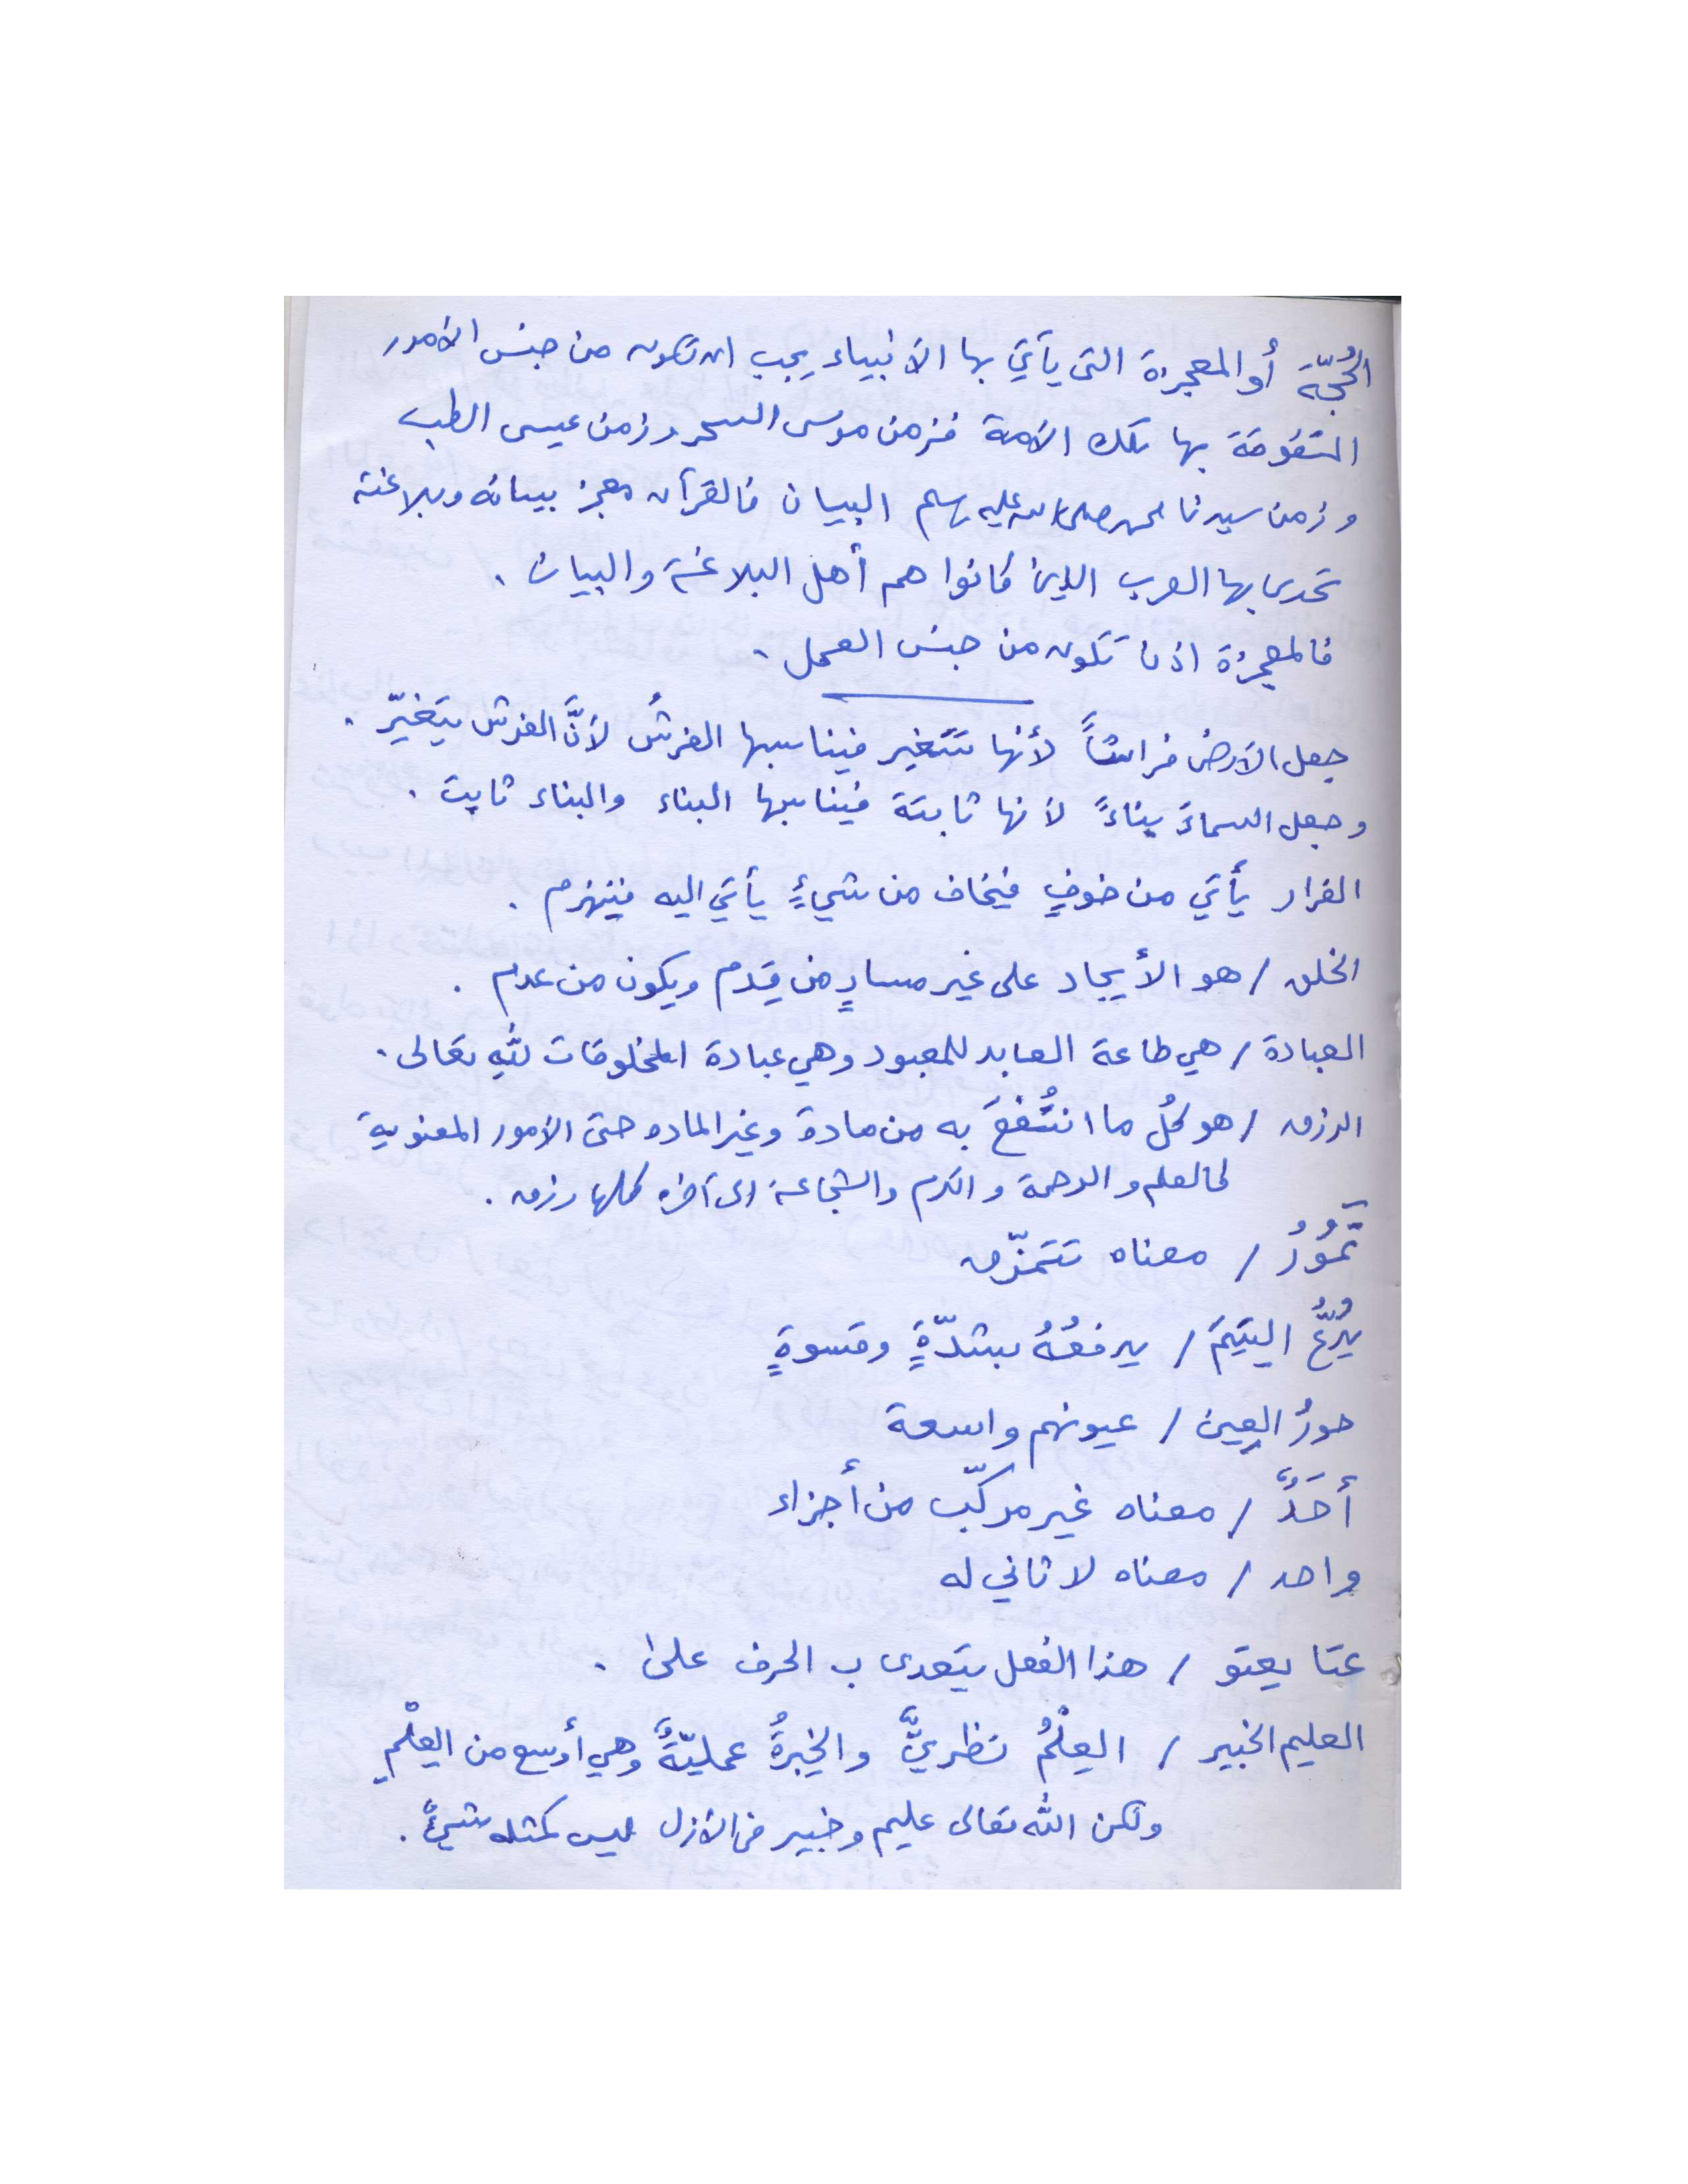 الحُجّة أو المعجزة التي يأتي بها الأنبياء يجب ان تكون من جنس الأمور
المتفوقة بها تلك الأمة فزمن موسى السحر وزمن عيسى الطب
وزمن سيدنا محمد صلى الله عليه وسلم البيان فالقرآن معجز ببيانه وبلاغته
تحدى بها العرب الذين كانوا هم أهل البلاغة والبيان .
فالمعجزة اذن تكون من جنس العمل .
جعل الأرض فراشاً لأنها تتغير فيناسبها الفرشُ لأنَّ الفرش يتغيّر .
وجعل السماءَ بناءً لأنها ثابتة فيناسبها البناء والبناء ثابت .
الفرار يأتي من خوفٍ فيخاف من شيءٍ يأتي اليه فينهزم .
الخلق / هو الأيجاد على غير مسارٍ من قِدم ويكون من عدم .
العبادة / هي طاعة العابد للمعبود وهي عبادة المخلوقات للهِ تعالى .
الرزق / هو كلُ ما انتُفعَ به من مادة وغير الماده حتى الأمور المعنوية
كالعلم والرحمة والكرم والشجاعة الى آخره كلها رزق .
تَمُوُرُ / معناه تتمزّق
يُدُعُّ اليتيمَ / يدفعُهُ بشدّةٍ وقسوةٍ
حورُ العِين / عيونهم واسعة
أحَدٌ / معناه غير مركّب من أجزاء
واحد / معناه لا ثاني له
عتا يعتو / هذا الفعل يتعدى ب الحرف على .
العليم الخبير / العِلْمُ نظريٌّ والخِبرةُ عمليّةٌ وهي أوسع من العِلْمِ
ولكن الله تعالى عليم وخبير في الأزل ليس كمثله شيءٌ .